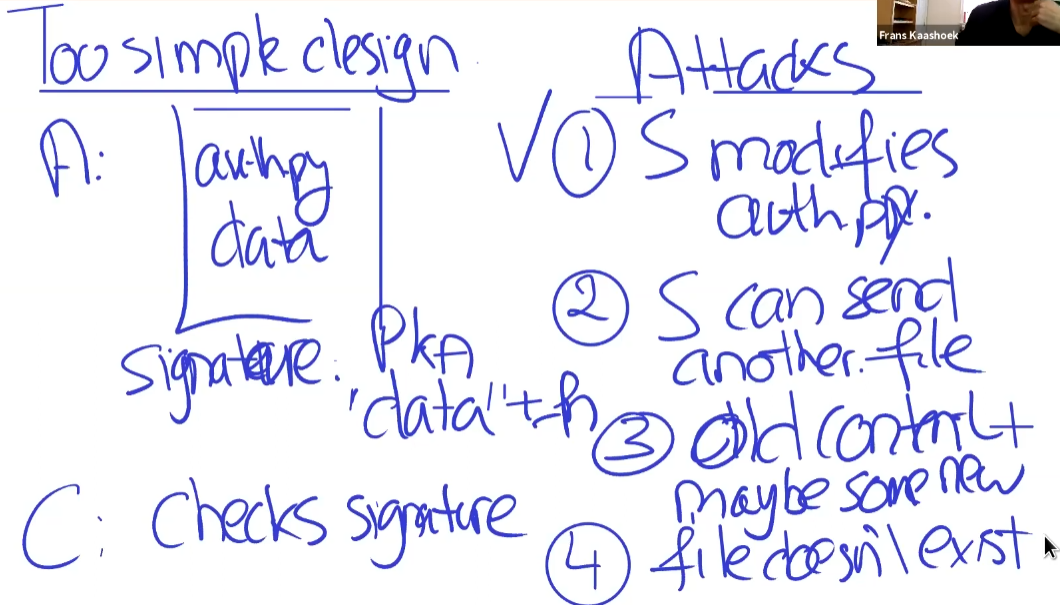 Too simple design
A:
auth.py
data
signature:
PkA
"data" + fn
C: checks signature
Frans Kaashoek
Attacks
V ① S modifies
auth.py.
② S can send
another file
③ Old content +
maybe some new
④ file doesn't exist